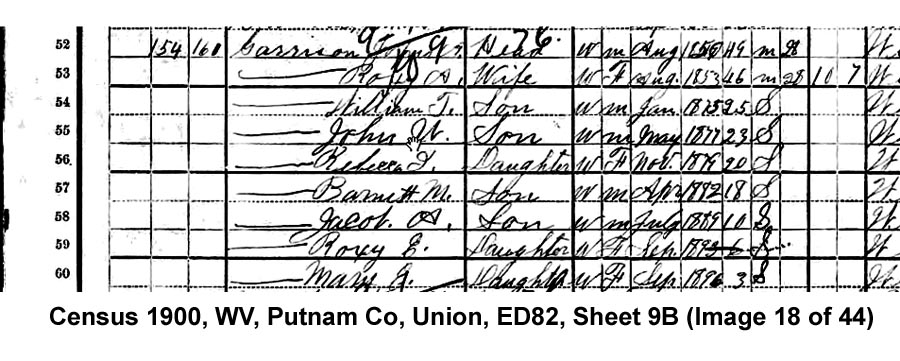 52 154 160 Garrison Head W m Aug 1850 49 m 28 W
53 A. Wife W F Aug. 1853 46 m 28 10 7 W
54 William T. Son W m Jan 1875 25 S W
55 John W. Son W m May 1877 23 S W
56 Rebecca Daughter W F Nov. 1879 20 S W
57 Barnett M. Son W m Apr 1882 18 S W
58 Jacob. A. Son W m July 1889 10 S W
59 Roxy E. Daughter W F Sep. 1893 6 S W
60 Mary A. Daughter W F Sep 1896 3 S W
Census 1900, WV, Putnam Co, Union, ED82, Sheet 9B (Image 18 of 44)